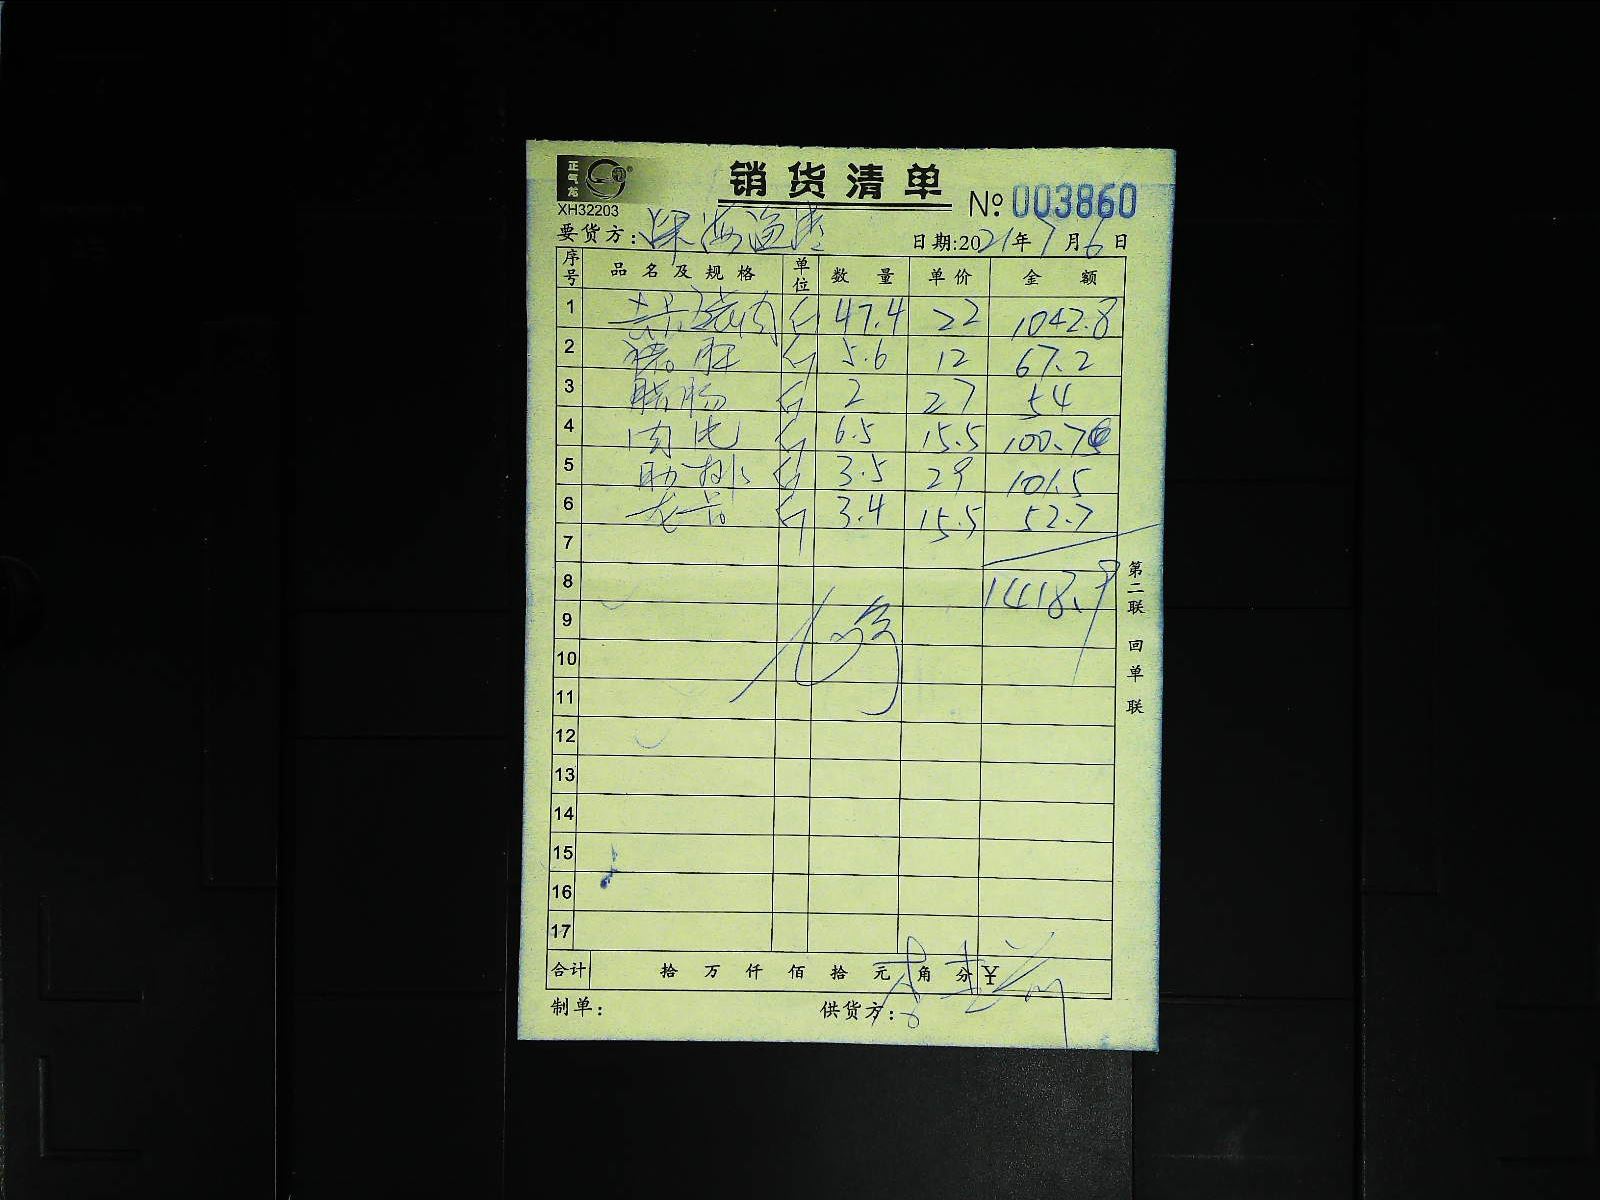 正气龙
XH32203
销货清单
№ 003860
要货方：深海渔港
日期:2021年7月6日
序号 品名及规格 单位 数量 单价 金额
1 斤 47.4 22 1042.8
2 猪肚 斤 5.6 12 67.2
3 斤 2 27 54
4 肉 斤 6.5 15.5 100.7
5 肋排 斤 3.5 29 101.5
6 斤 3.4 15.5 52.7
7
8 1418.9
9
10
11
12
13
14
15
16
17
合计 拾 万 仟 佰 拾 元 角 分 ¥
制单： 供货方：
第二联 回单联